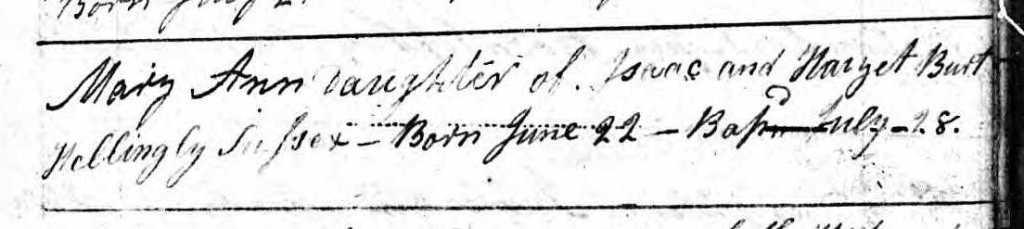 Born July 2
Mary Ann Daughter of Isaac and Haryet Burt
Hellingly Sussex – Born June 22 – Bapd July – 28.